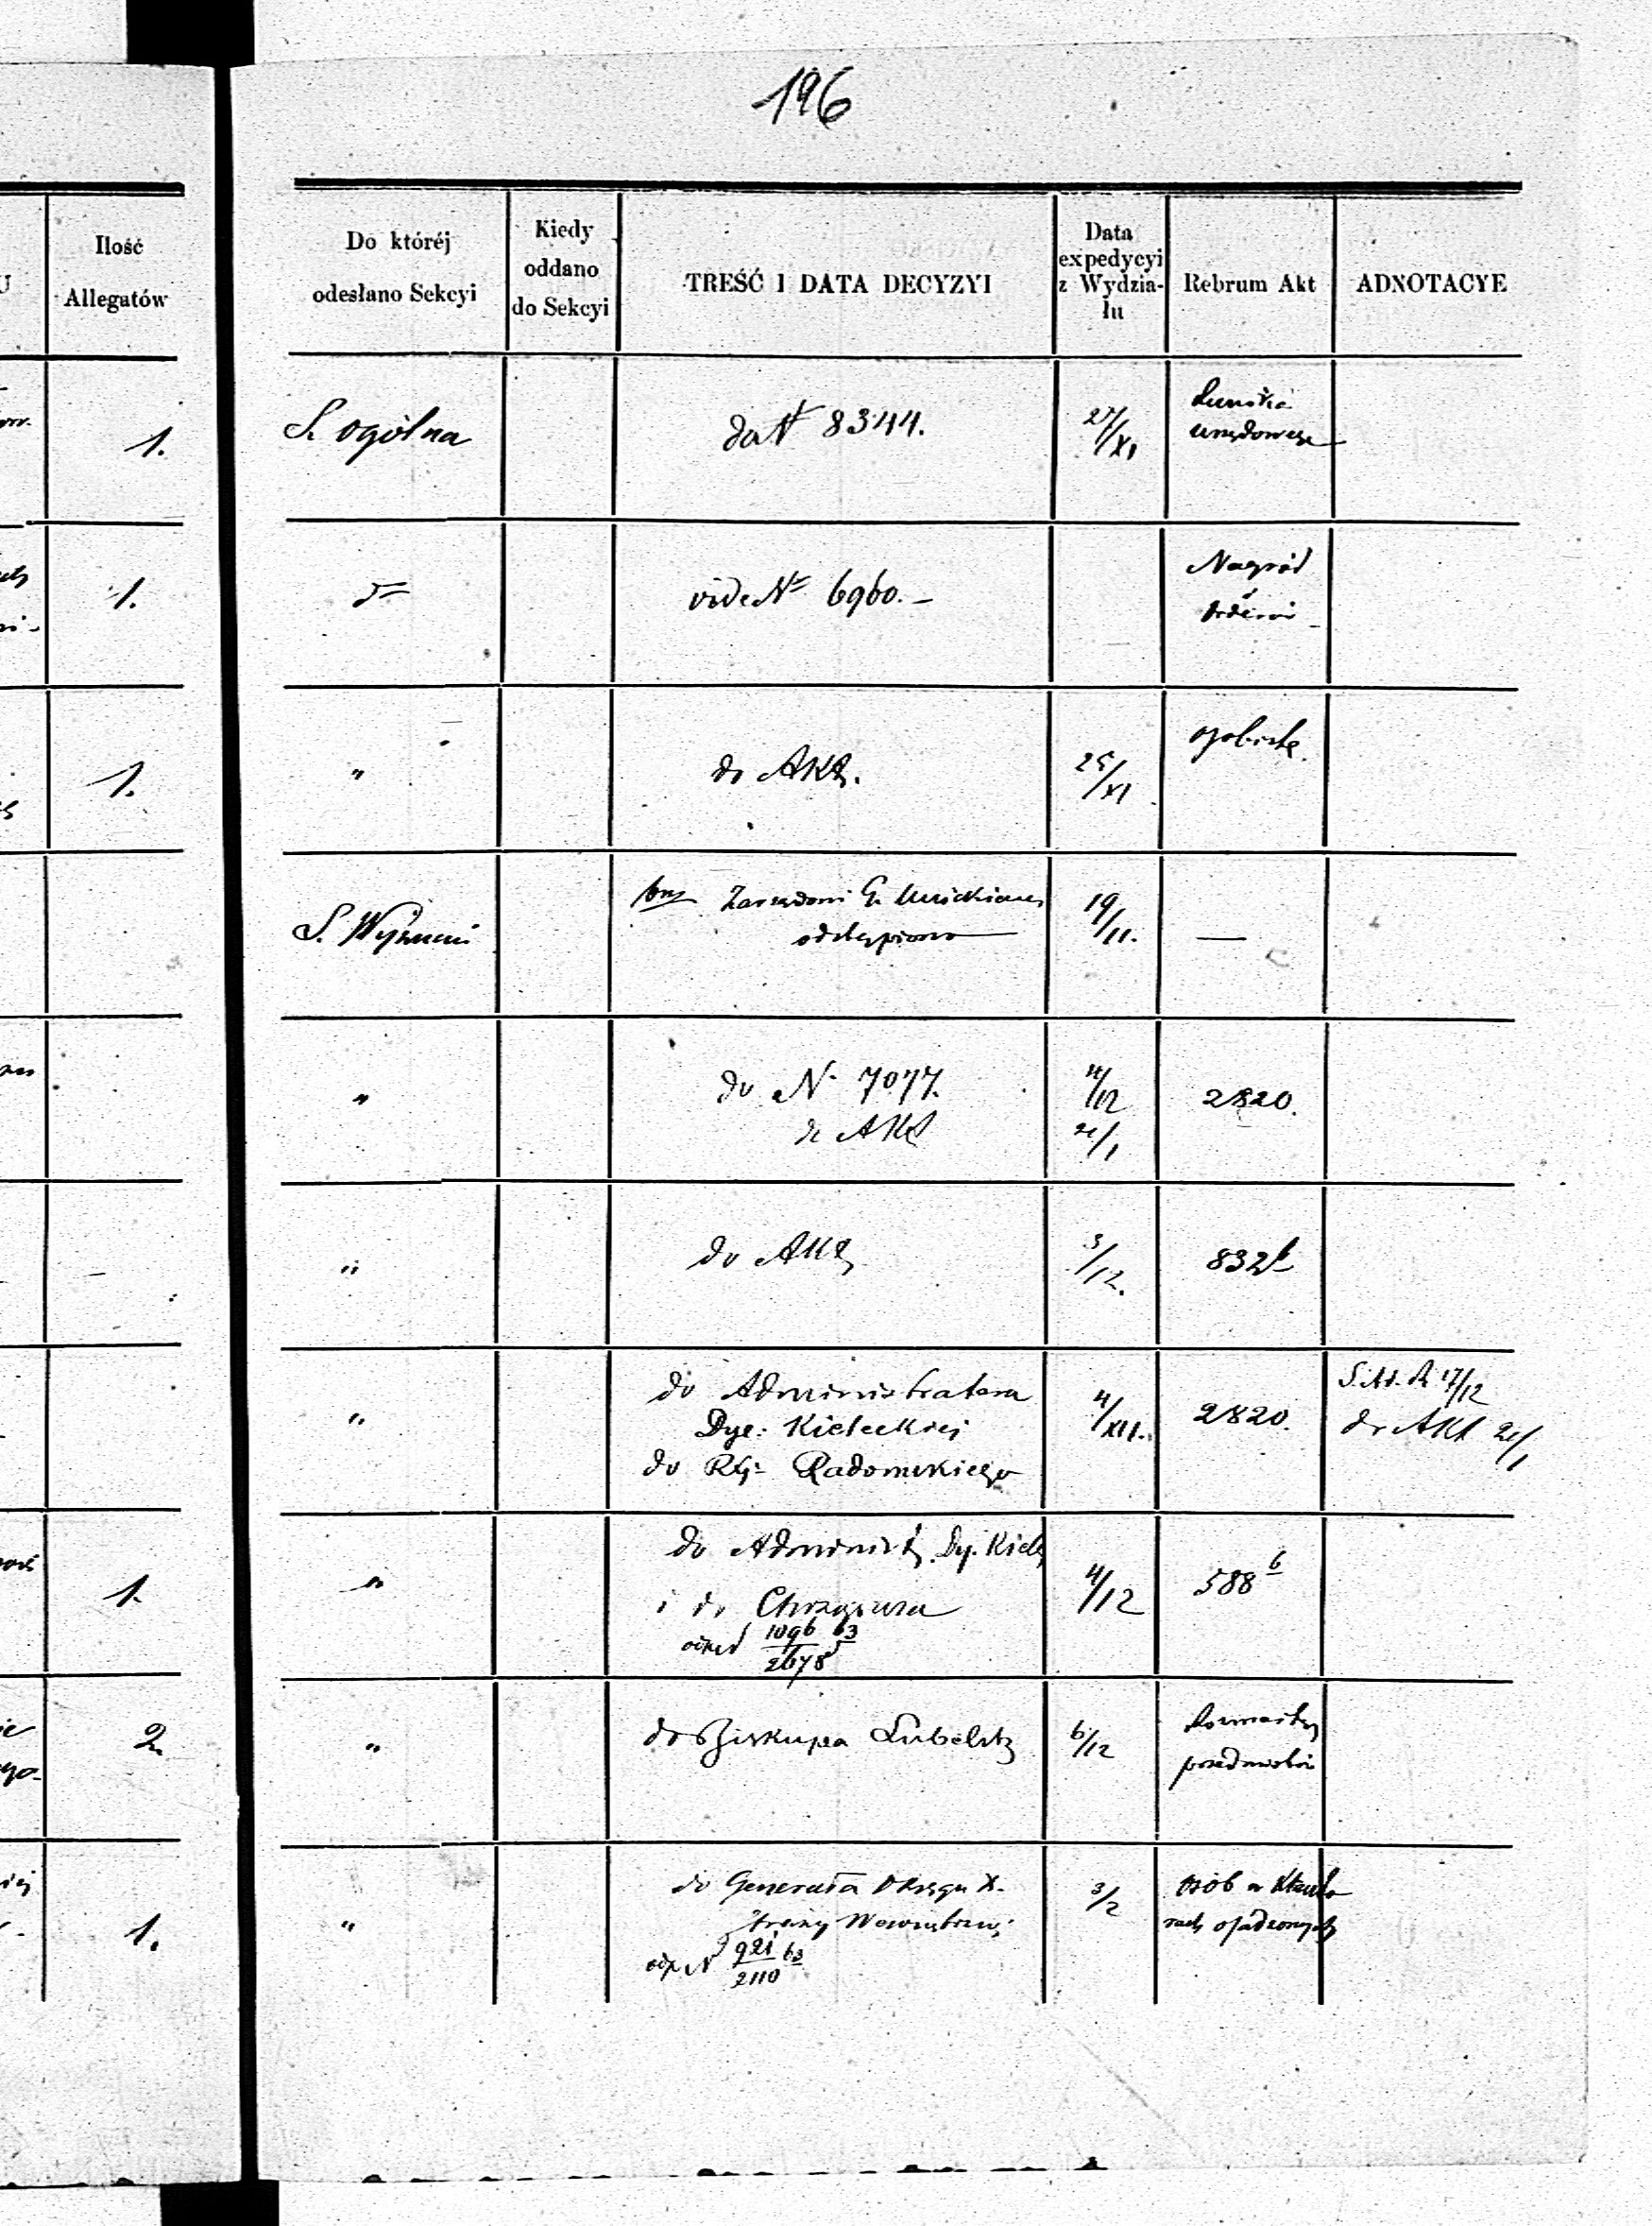 196
Ilość
Allegatów
Do któréj
odesłano Sekcyi
Kiedy
oddano
do Sekcyi
TREŚĆ I DATA DECYZYI
Data
expedycyi
z Wydzia-
łu
Rebrum Akt
ADNOTACYE
1.
S. ogólna
do N 8344.
27/XI
1.
vide N 6960.-
Nagród
1.
"
do Akt.
25/XI
S. Wyznań
odstąpiono
19/11.
—
"
do N. 7077.
4/12
2820.
do Akt
21/1
"
do Akt
3/12.
832
"
do Administratora
Dye: Kieleckiej
do Radomskiego
4/XII.
2820.
17/12
do Akt 21/1
1.
"
do Administ. Dy. Kiel
i do
1096 63
2678
4/12
588 b
2
"
do Biskupa Lubels
6/12
1.
"
do Generała Okręgu X.
Straży Wewnętrznej
odp N 921 63
2110
3/2
osób w klaszto
rach osadzonych